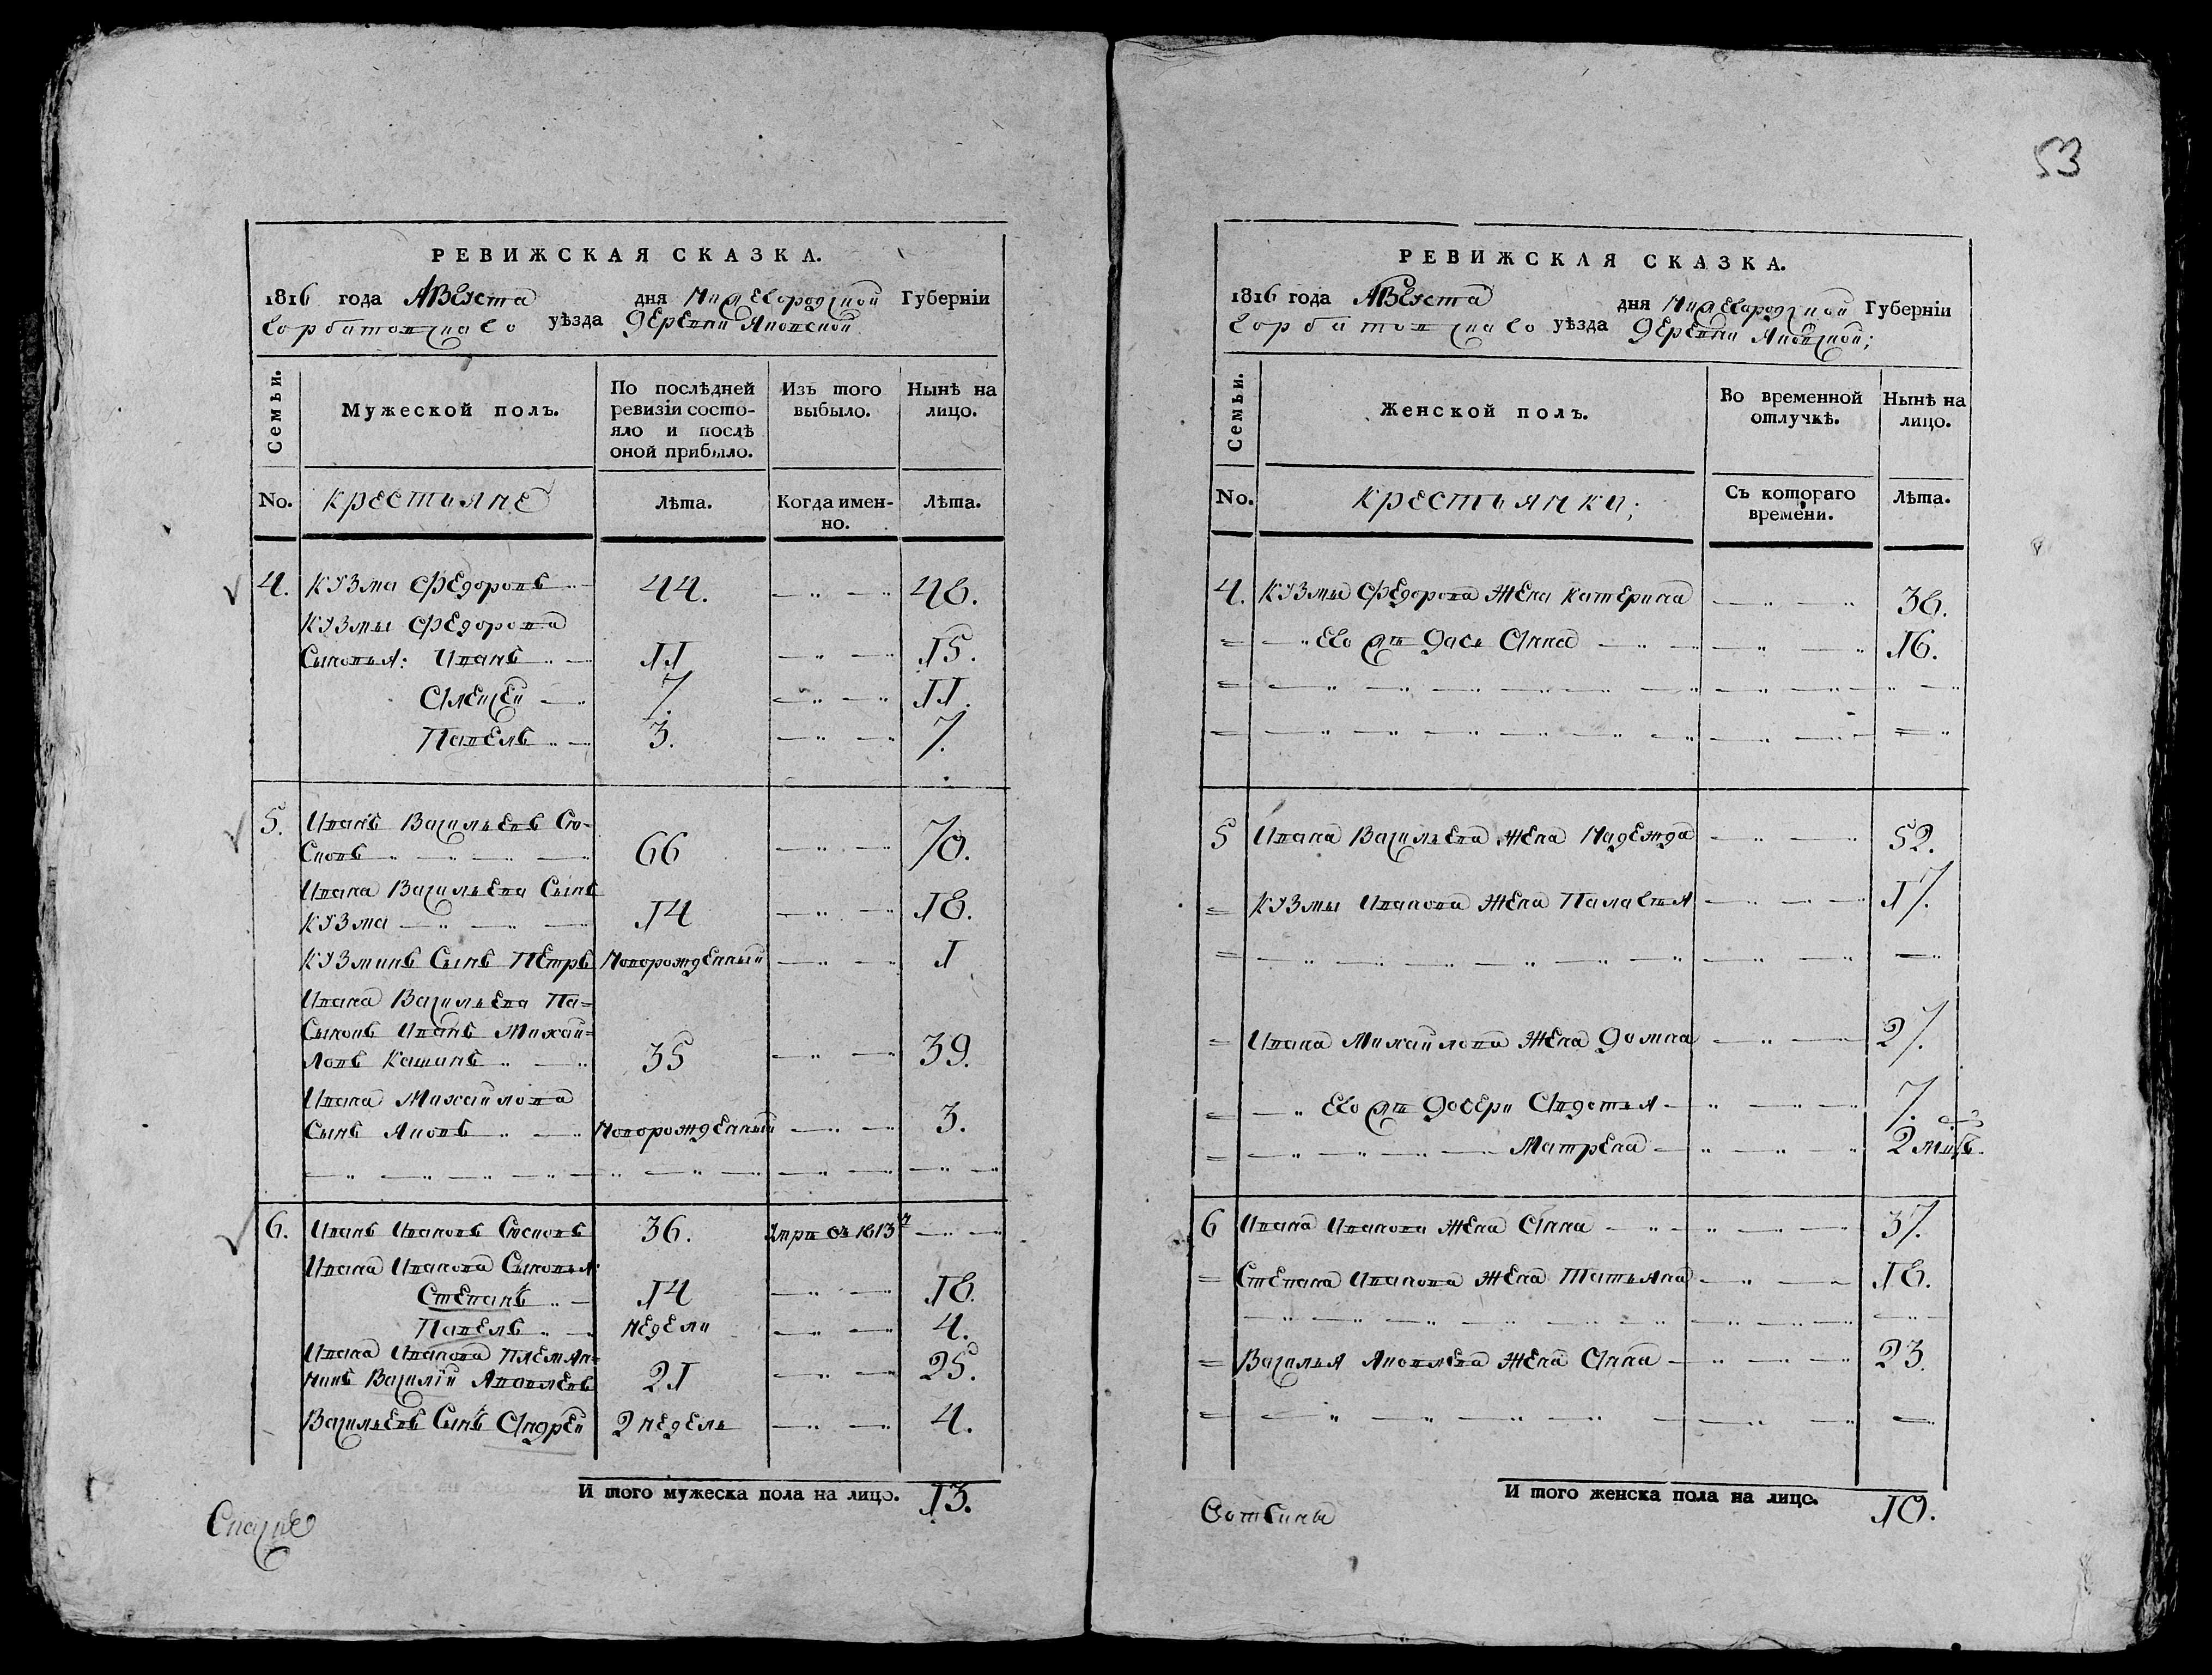 53
РЕВИЖСКАЯ СКАЗКА.
1816 года Августа дня Нижегородской Губерніи
Горбатовскаго уѣзда деревни Яновской
Семьи. Мужеской полъ. По послѣдней ревизіи состояло и послѣ оной прибыло. Изъ того выбыло. Нынѣ на лицо.
No. крестьяне Лѣта. Когда именно. Лѣта.
4. Кузма Федоровъ 44. 48.
Кузмы Федорова
Сыновья: Иванъ 11 15.
Алексей 7. 11.
Павелъ 3. 7.
5. Иванъ Васильевъ Сю-
сновъ 66 70.
Ивана Васильева Сынъ
Кузма 14 18.
Кузминъ Сынъ Петръ Новорожденный 1
Ивана Васильева Па=
сынокъ Иванъ Михай=
ловъ Кашинъ 35 39.
Ивана Михайлова
Сынъ Яковъ Новорожденный 3.
6. Иванъ Ивановъ Сюсновъ 36. Умре въ 1813м
Ивана Иванова Сыновья:
Степанъ 14 18.
Павелъ недели 4.
Ивана Иванова племян=
никъ Василій Яковлевъ 21 25.
Васильевъ Сынъ Андрей 2 недель 4.
И того мужеска пола на лицо. 13.
РЕВИЖСКАЯ СКАЗКА.
1816 года Августа дня Нижегородской Губерніи
Горбатовскаго уѣзда деревни Яновской;
Семьи. Женской полъ. Во временной отлучкѣ. Нынѣ на лицо.
No. крестьянки; Съ котораго времени. Лѣта.
4. Кузмы Федорова жена Катерина 38.
= Ево же дочь Анна 16.
5 Ивана Васильева жена Надежда 52.
= Кузмы Иванова жена Палагея 17.
= Ивана Михайлова жена Домна 27.
= Ево же дочери Авдотья 7.
= Матрена 2 мцъ.
6 Ивана Иванова жена Анна 37.
= Степана Иванова жена Татьяна 18.
= Василья Яковлева жена Анна 23.
И того женска пола на лицо. 10.